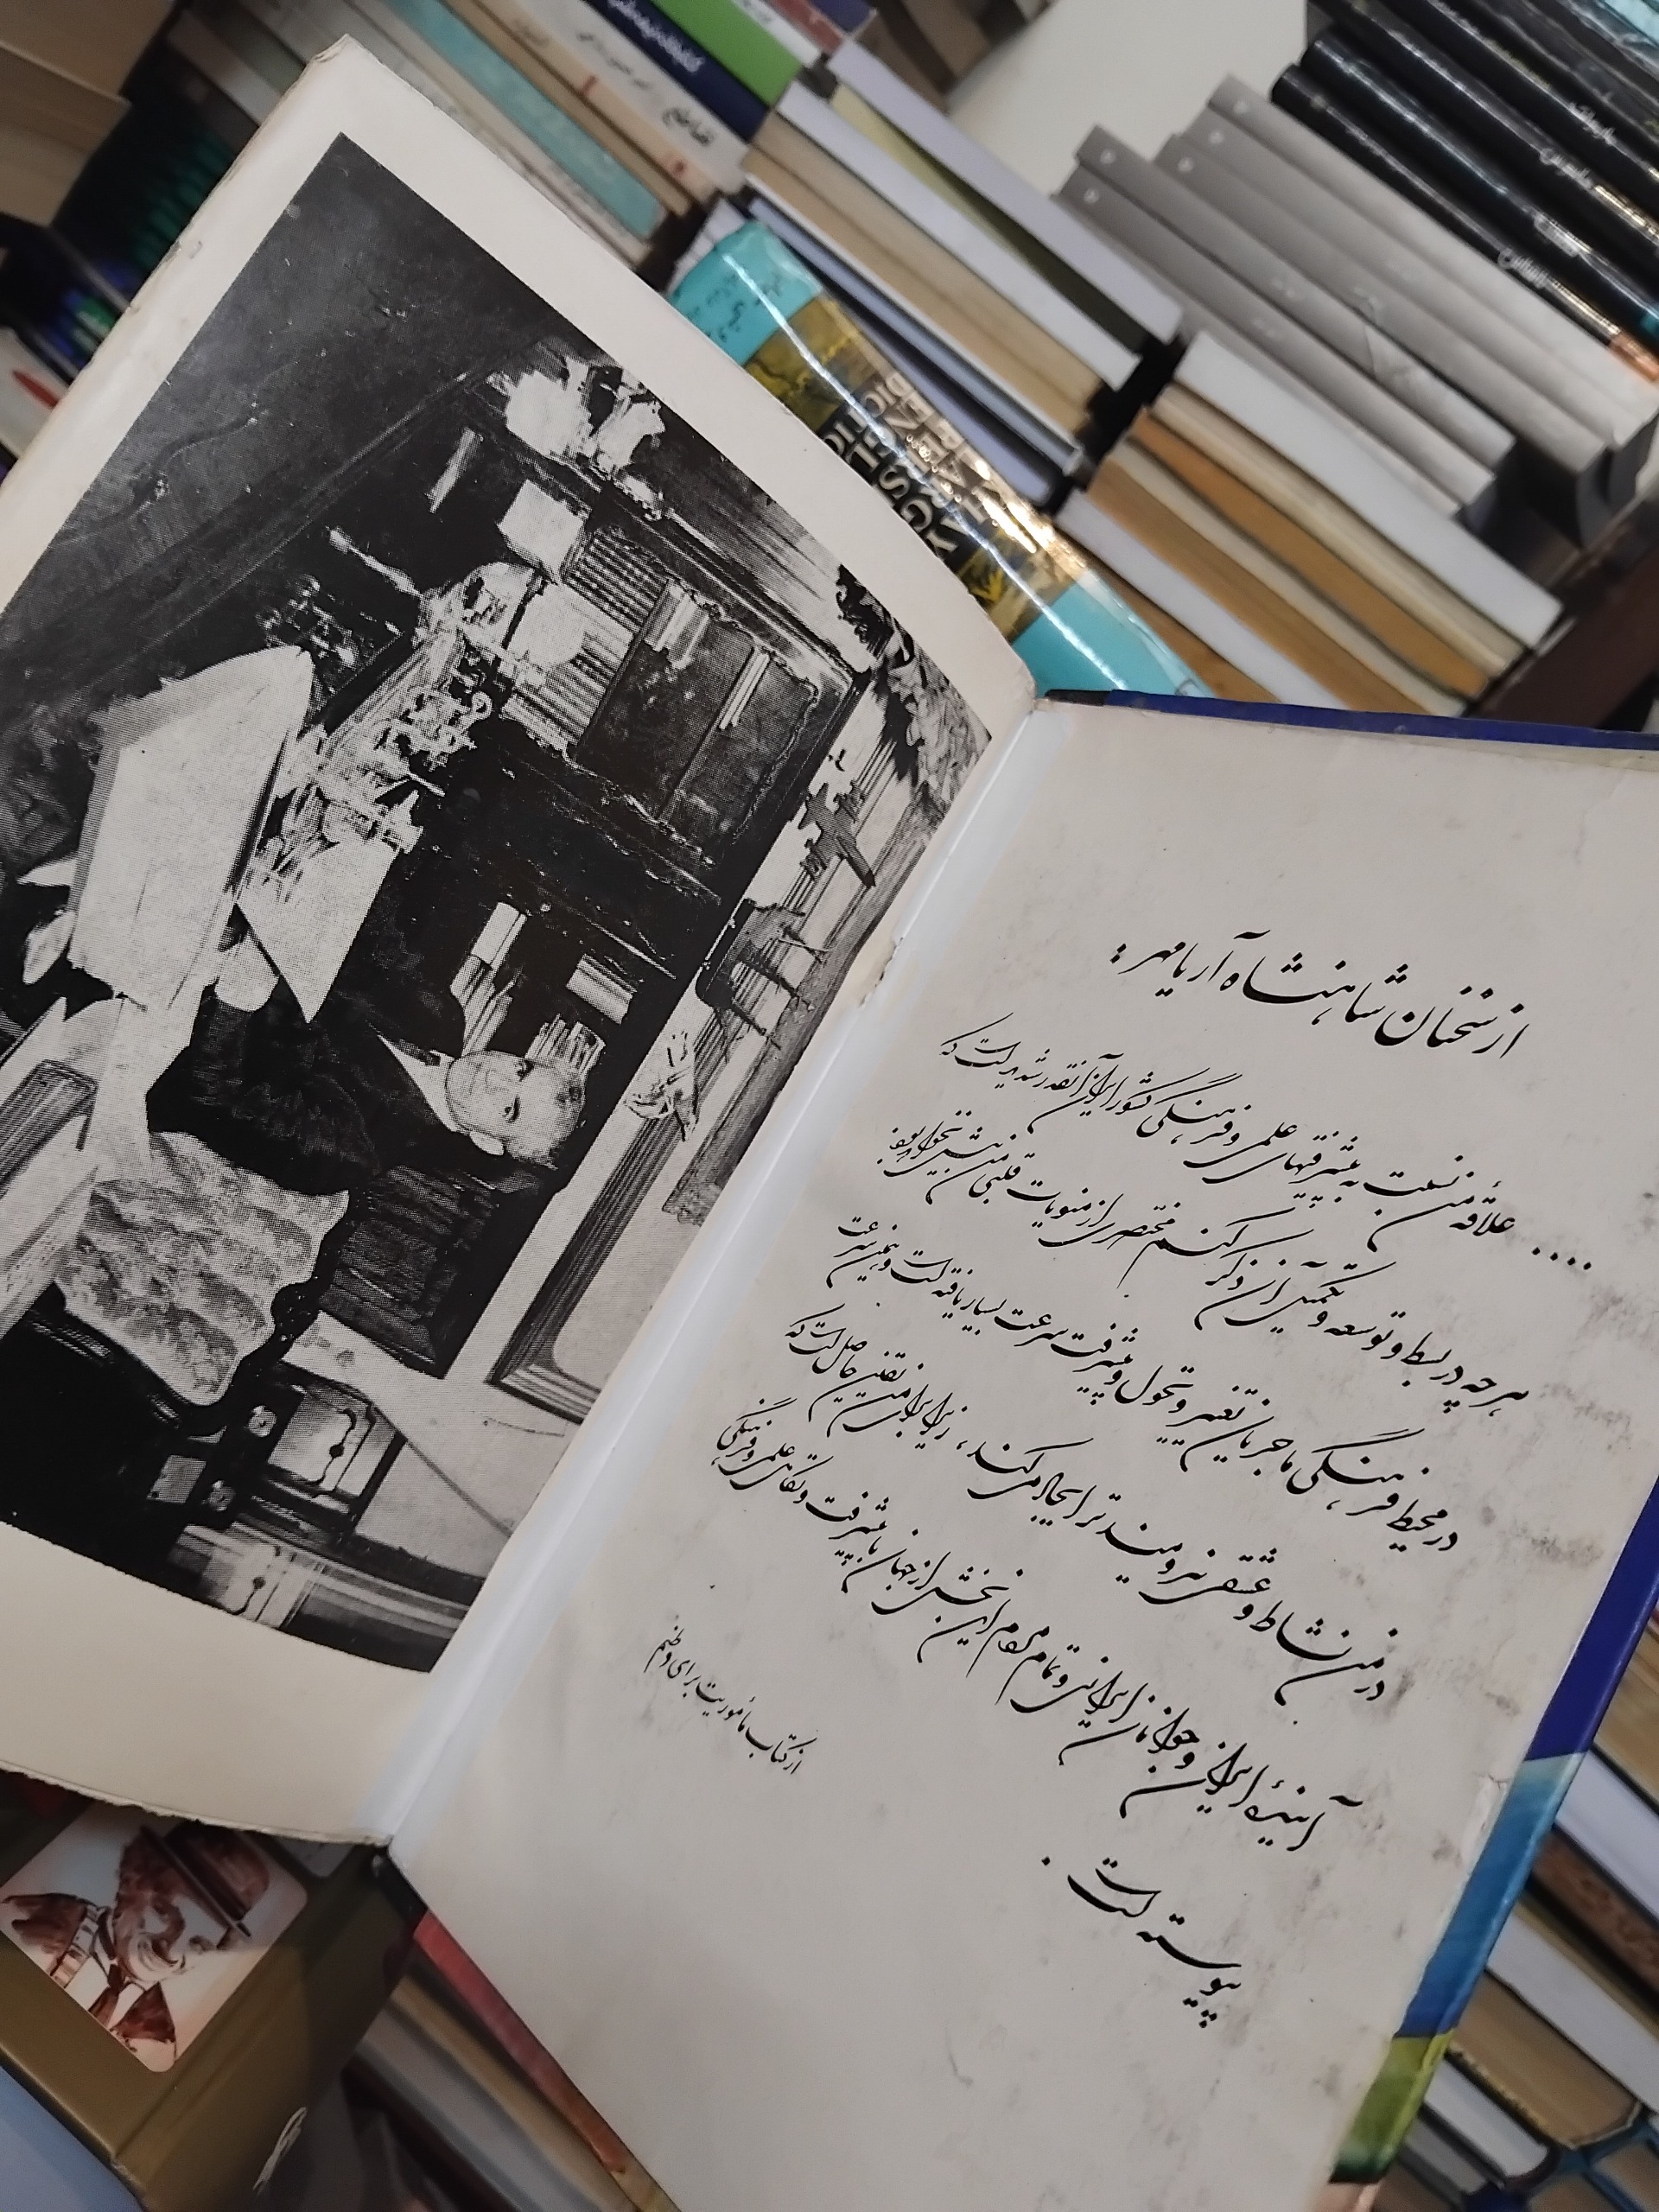 از سخنان شاهنشاه آریامهر :
.... علاقهٔ من نسبت به پیشرفتهای علمی و فرهنگی کشور ایران آنقدر شدید است که
هر چه در بسط و توسعه و تکمیل آن ذکر کنم مختصری از منویات قلبی من بیش نخواهد بود
در محیط فرهنگی ما جریان تغییر و تحول و پیشرفت سرعت بسیار یافته است و همین سرعت
در من نشاط و عشقی نیرومندتر ایجاد میکند ، زیرا برای من یقین حاصل است که
آیندهٔ ایران و جوانان ایرانی و تمام مردم این بخش از جهان با پیشرفت و تکامل علمی و فرهنگی
پیوسته است .
از کتاب مأموریت برای وطنم